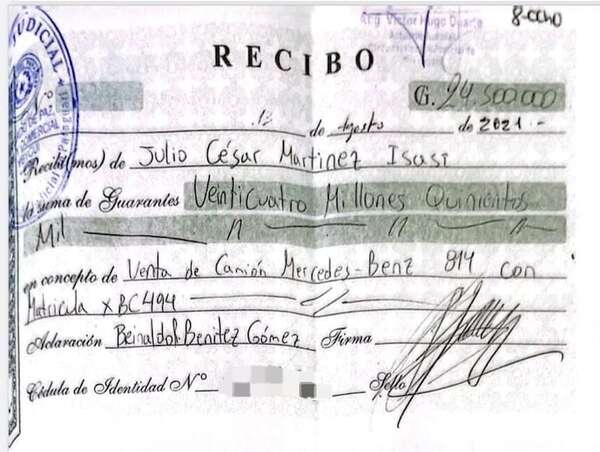 JUDICIAL
Arq. Victor Hugo Duarte
8-ocho
RECIBO
G. 24.500.000
12 de Agosto de 2021.-
Recibí(mos) de Julio César Martinez Isasi
la suma de Guaraníes Veinticuatro Millones Quinientos
Mil
en concepto de Venta de Camión Mercedes-Benz 814 con
Matricula XBC494
Aclaración Beinaldo Benitez Gómez Firma
Cédula de Identidad Nº Sello